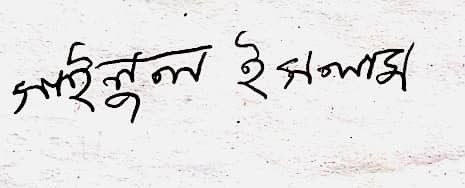 সাইনুল ইসলাম